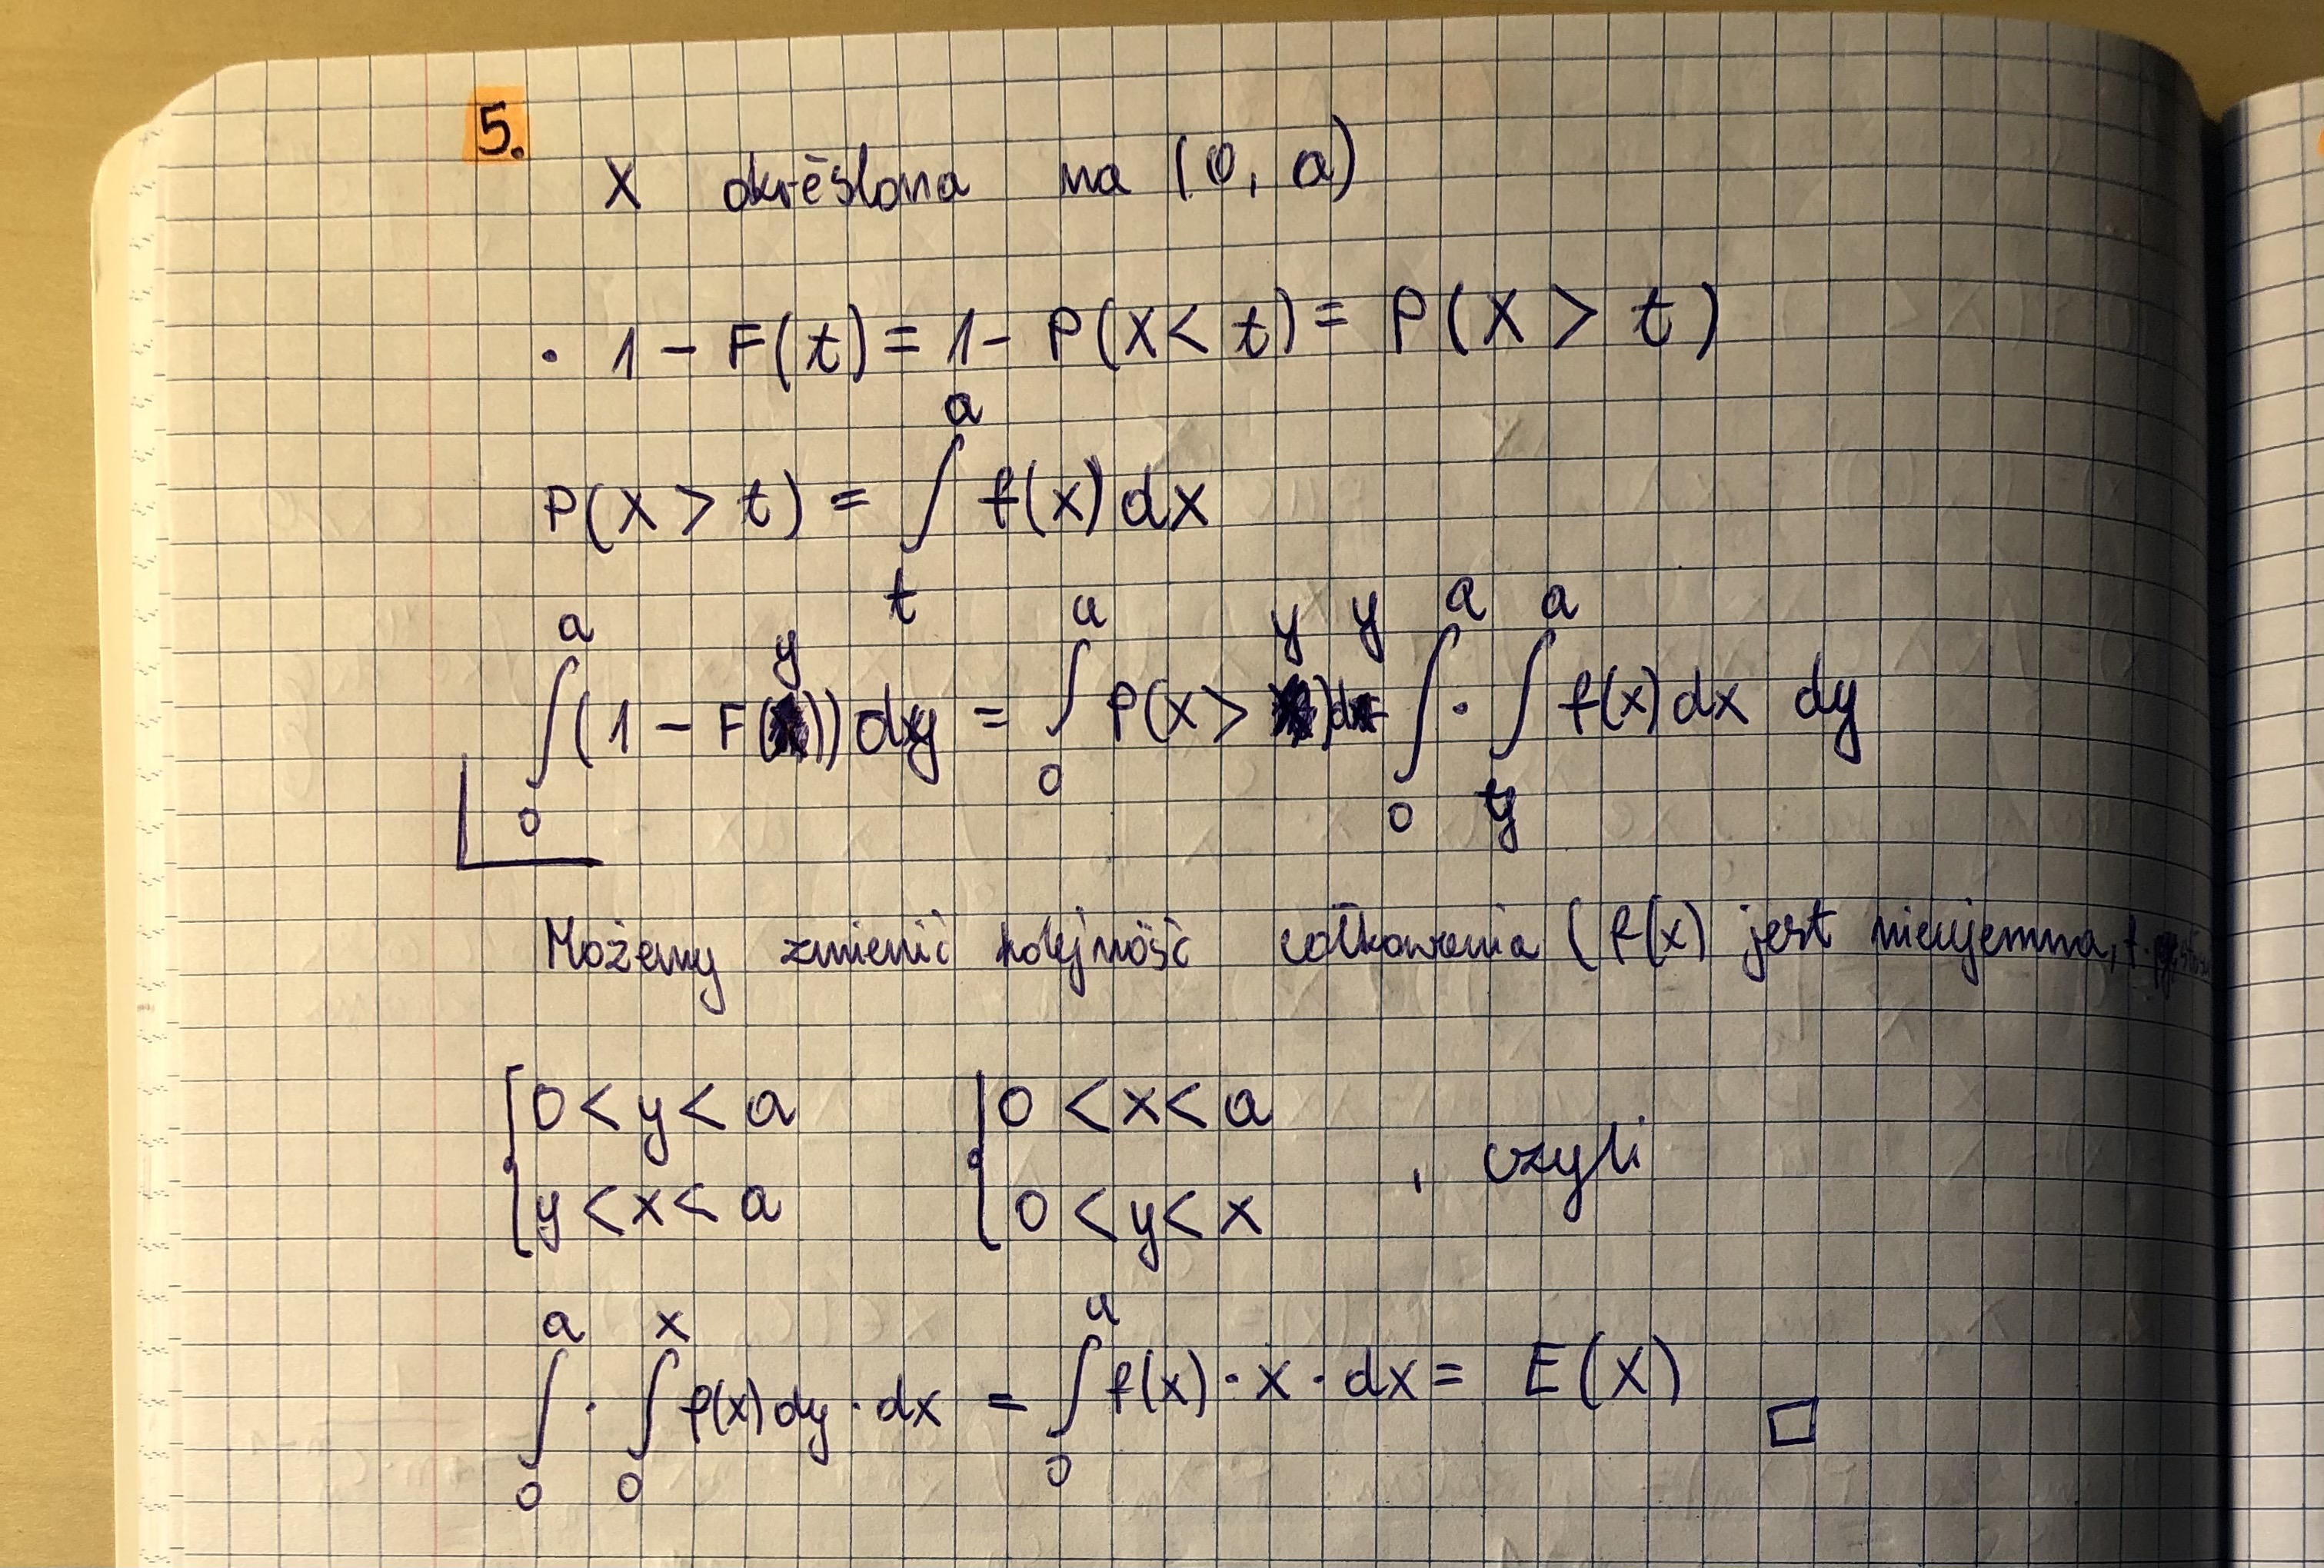 5.
X określona na (0, a)
· 1 - F(t) = 1 - P(X < t) = P(X > t)
P(X > t) = ∫_t^a f(x) dx
∫_0^a (1 - F(y)) dy = ∫_0^a P(X > y) dy = ∫_0^a · ∫_y^a f(x) dx dy
Możemy zmienić kolejność całkowania (f(x) jest nieujemna,
{ 0 < y < a { 0 < x < a
{ y < x < a { 0 < y < x , czyli
∫_0^a · ∫_0^x f(x) dy · dx = ∫_0^a f(x) · x · dx = E(X) □